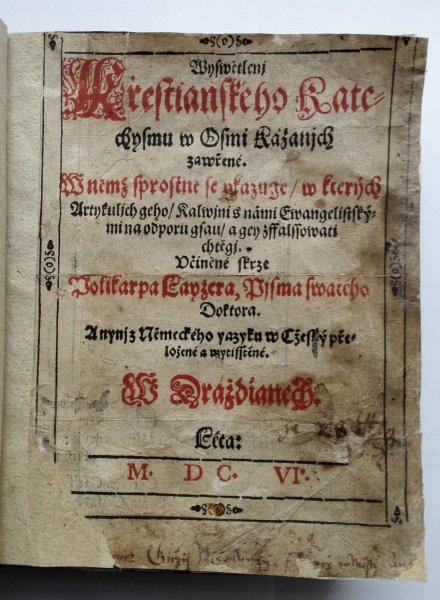 Wyswětlenj
Křestianského Kate-
chysmu w Osmi Kázanjch
zawřené.
W němž sprostně se ukazuge / w kterých
Artykulich geho / Kalwjni s námi Ewangelistský-
mi na odporu gsau / a gey zffalssowati
chtěgj.
Včiněné skrze
Polikarpa Layzera, Pjsma swatého
Doktora.
A nynj z Německého yazyku w Cžeský pře-
ložené a wytisstěné.
W Draždianech.
Léta:
M. D C. VI.